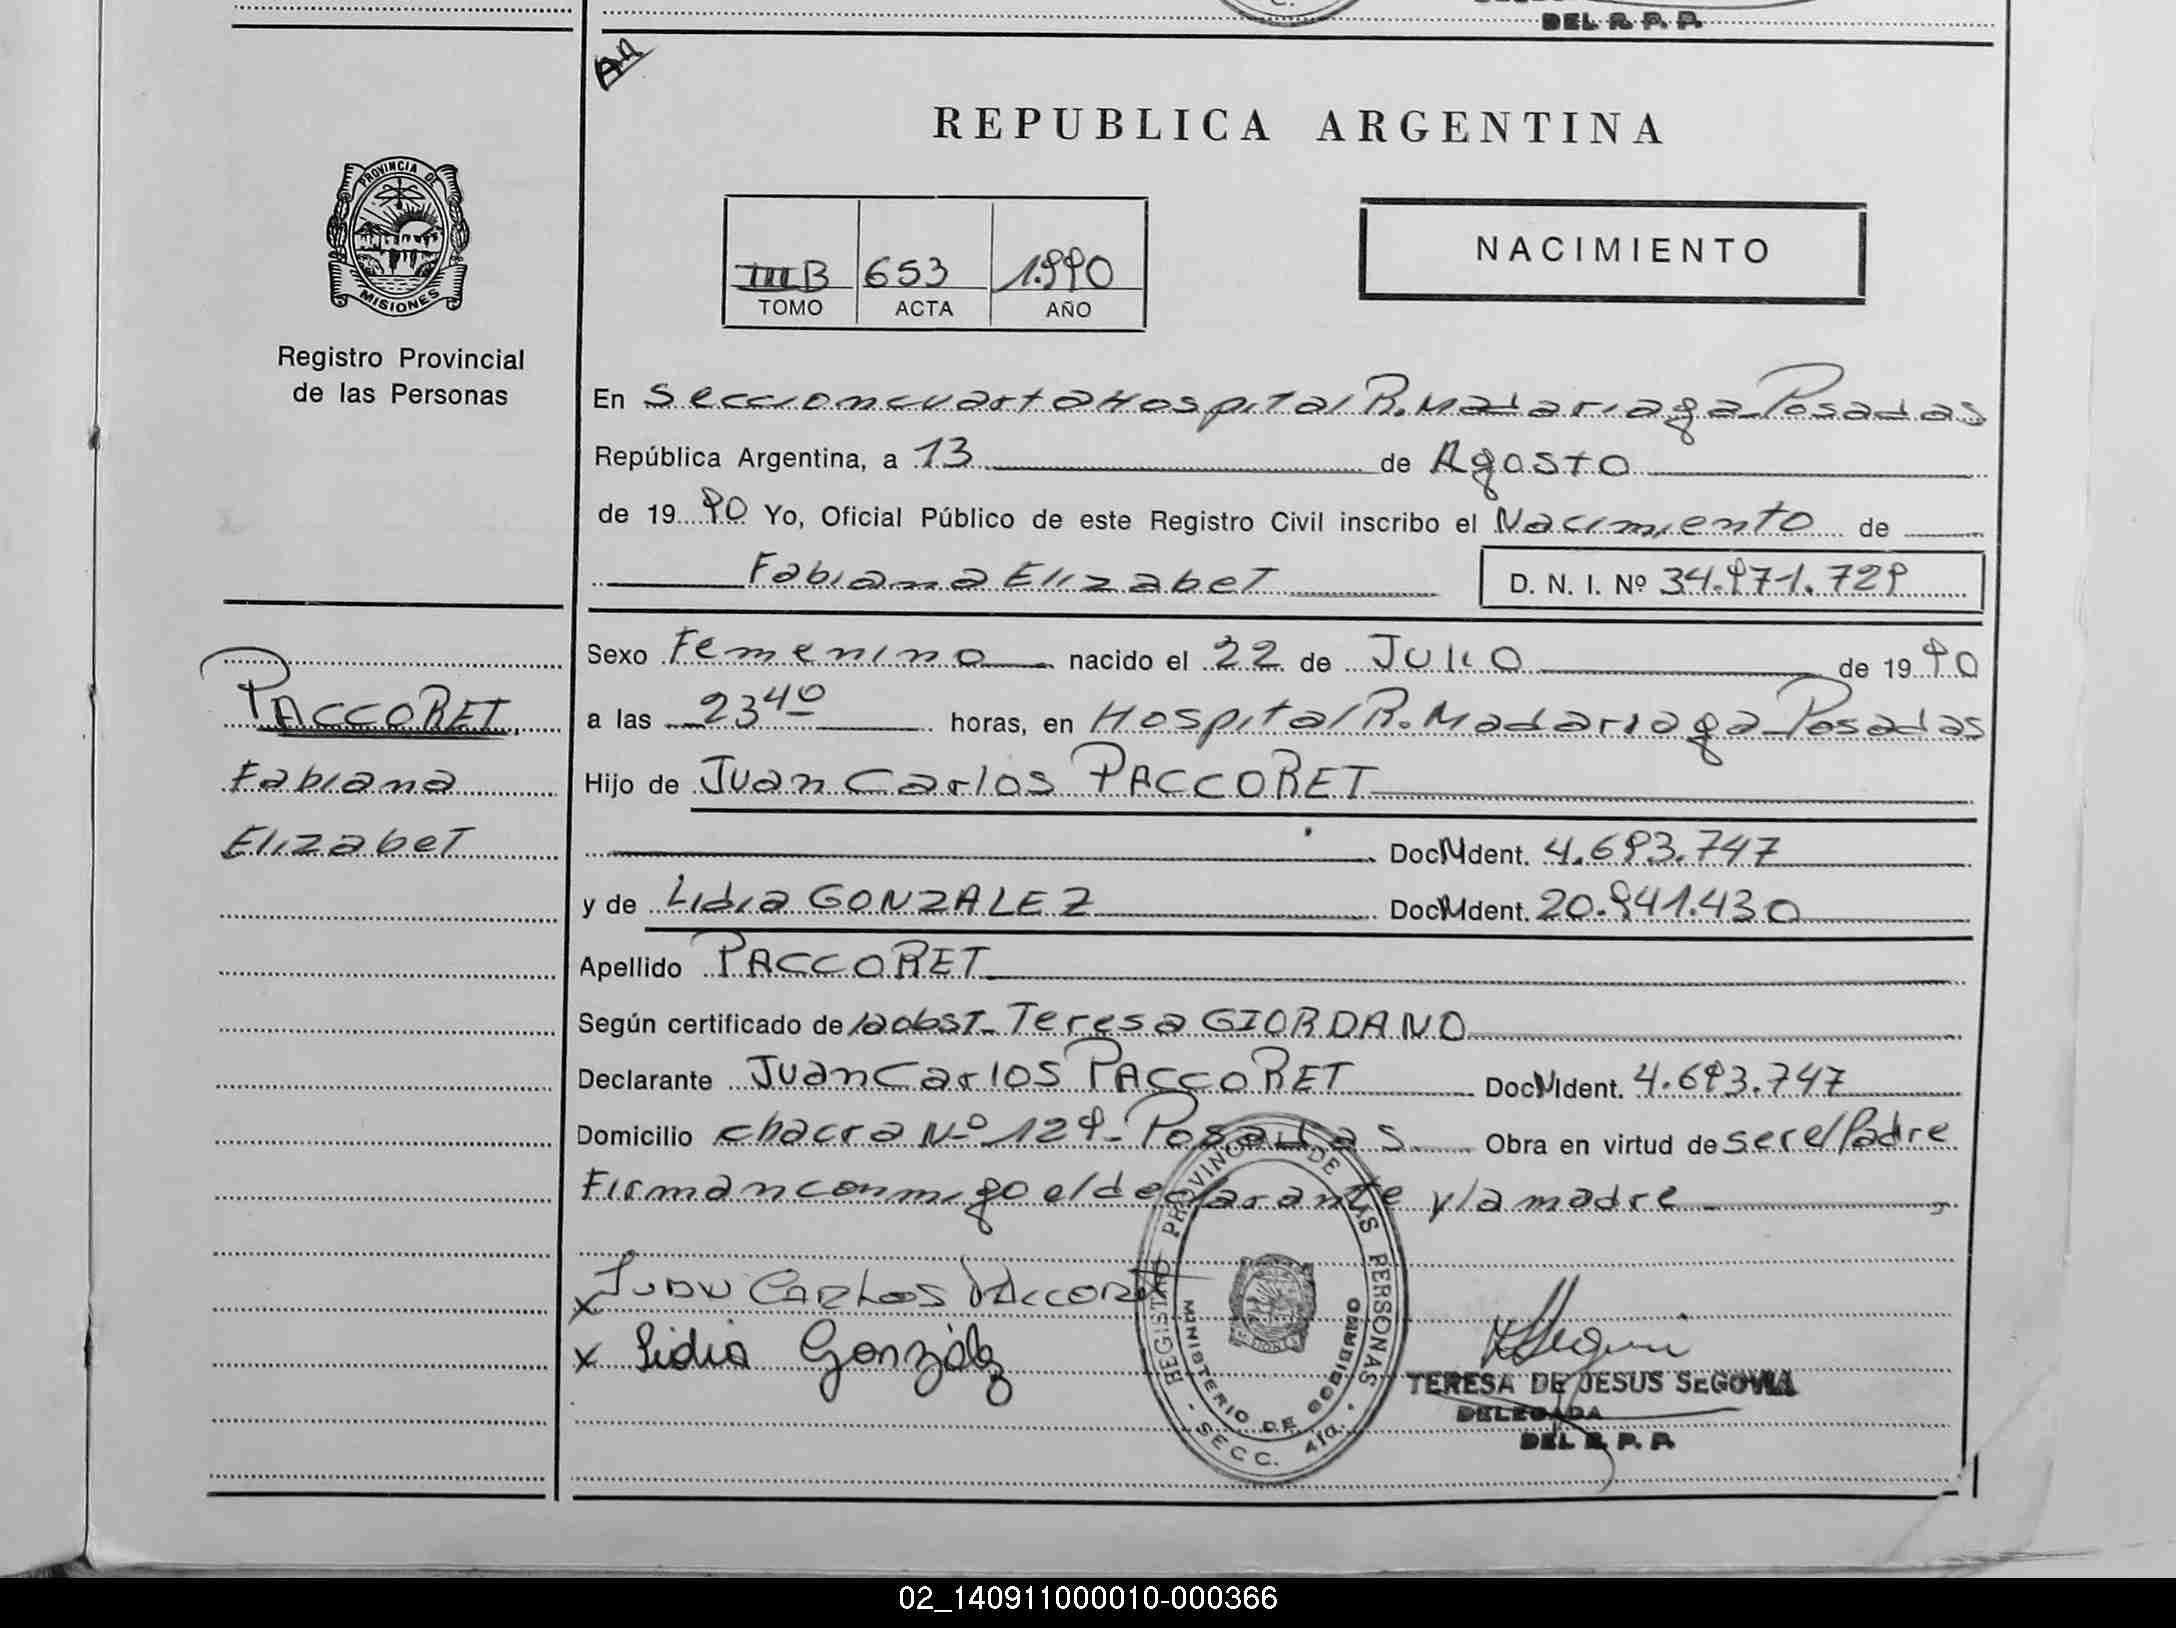 DEL R. P. P.
REPUBLICA ARGENTINA
PROVINCIA DE
MISIONES
Registro Provincial
de las Personas
III B 653 1.990
TOMO ACTA AÑO
NACIMIENTO
En Seccion cuarta Hospital R. Madariaga - Posadas
República Argentina, a 13 de Agosto
de 1990 Yo, Oficial Público de este Registro Civil inscribo el Nacimiento de
Fabiana Elizabet D. N. I. Nº 34.971.729
PACCORET
Fabiana
Elizabet
Sexo Femenino nacido el 22 de Julio de 1990
a las 23 40 horas, en Hospital R. Madariaga - Posadas
Hijo de Juan Carlos PACCORET
Doc. Ident. 4.693.747
y de Lidia GONZALEZ Doc. Ident. 20.941.430
Apellido PACCORET
Según certificado de la obst. Teresa GIORDANO
Declarante Juan Carlos PACCORET Doc. Ident. 4.693.747
Domicilio chacra Nº 129 - Posadas Obra en virtud de ser el Padre
Firman conmigo el declarante y la madre
x Juan Carlos Paccoret
x Lidia González
REGISTRO PROVINCIAL DE LAS PERSONAS
MINISTERIO DE GOBIERNO
- SECC. 4ta. -
TERESA DE JESUS SEGOVIA
DELEGADA
DEL R. P. P.
02_140911000010-000366